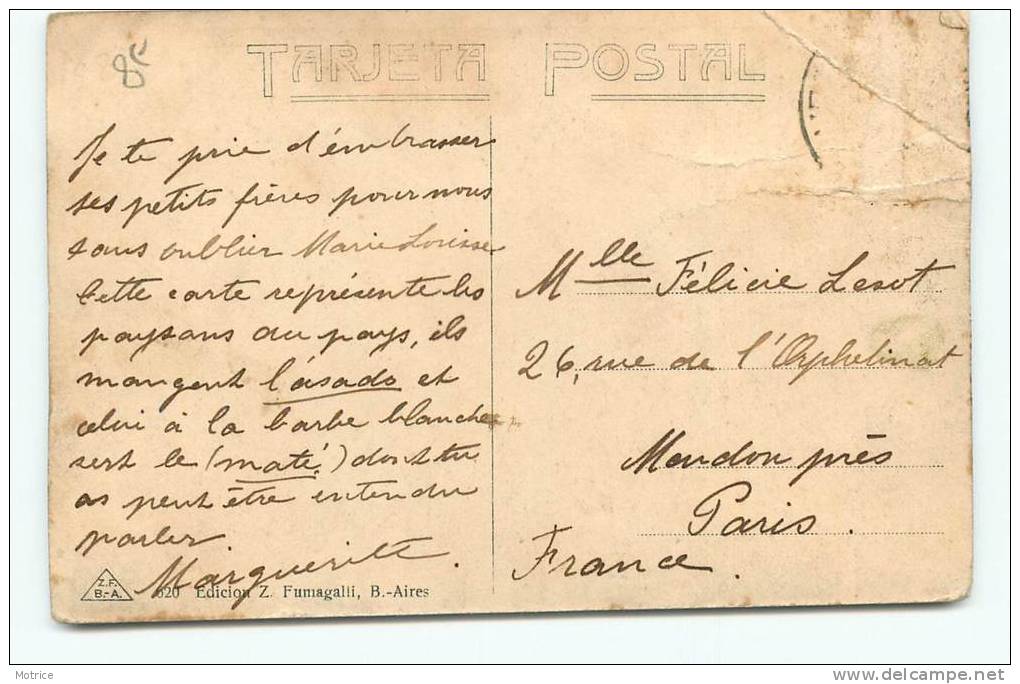 8€
TARJETA POSTAL
Je te prie d'embrasser
tes petits frères pour nous
sans oublier Marie Louise
Cette carte représente les
paysans du pays, ils
mangent l'ásado et
celui à la barbe blanche
sert le (maté) dont tu
as peut être entendu
parler.
Marguerite.
Mlle Félicie Lesot
26, rue de l'Orphelinat
Meudon près
Paris.
France.
Z.F.
B.-A.
620 Edicion Z. Fumagalli, B.-Aires
Motrice
www.delcampe.net